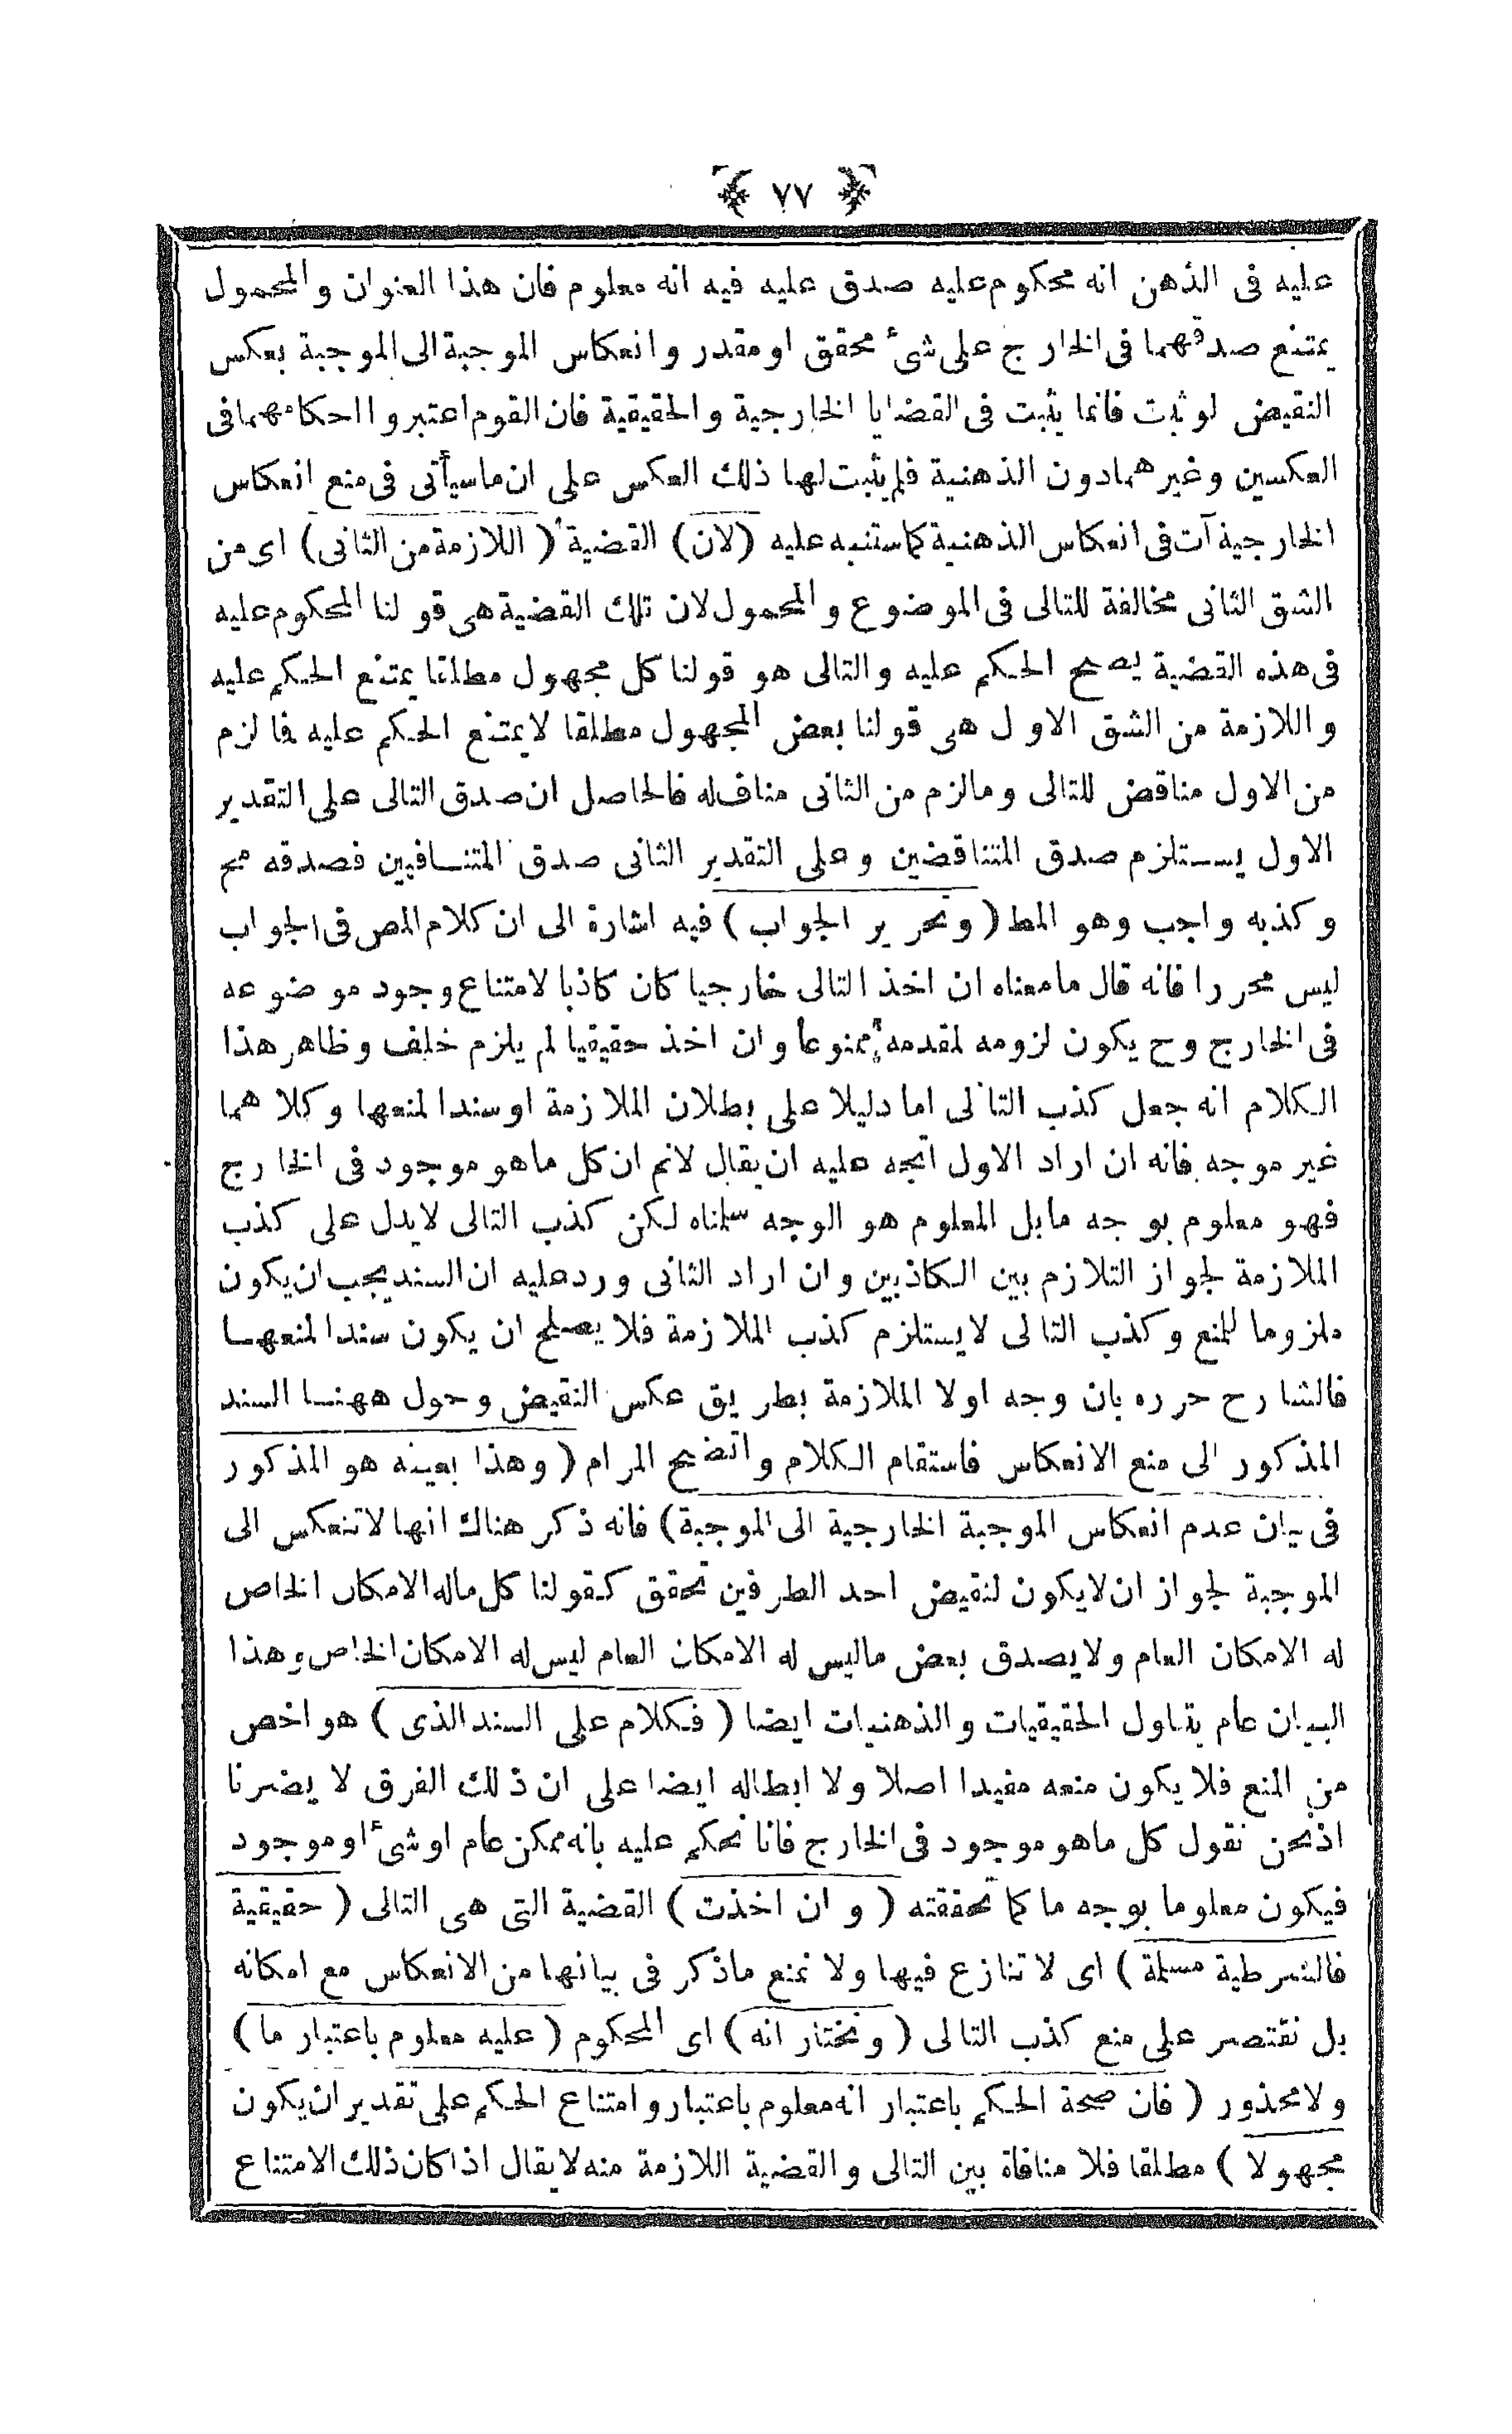 ٧٧
عليه فى الذهن انه محكوم عليه صدق عليه فيه انه معلوم فان هذا العنوان والمحمول
يمتنع صدقهما فى الخارج على شئ محقق او مقدر وانعكاس الموجبة الى الموجبة بعكس
النقيض لو ثبت فانما يثبت فى القضايا الخارجية والحقيقية فان القوم اعتبروا احكامهما فى
العكسين وغيرهما دون الذهنية فلم يثبت لها ذلك العكس على ان ما سيأتى فى منع انعكاس
الخارجية آت فى انعكاس الذهنية كما ستنبه عليه (لان) القضية (اللازمة من الثانى) اى من
الشق الثانى مخالفة للتالى فى الموضوع والمحمول لان تلك القضية هى قولنا المحكوم عليه
فى هذه القضية يصح الحكم عليه والتالى هو قولنا كل مجهول مطلقا يمتنع الحكم عليه
واللازمة من الشق الاول هى قولنا بعض المجهول مطلقا لا يمتنع الحكم عليه فما لزم
من الاول مناقض للتالى وما لزم من الثانى مناف له فالحاصل ان صدق التالى على التقدير
الاول يستلزم صدق المتناقضين وعلى التقدير الثانى صدق المتنافيين فصدقه مح
وكذبه واجب وهو المط (وتحرير الجواب) فيه اشارة الى ان كلام المص فى الجواب
ليس محررا فانه قال ما معناه ان اخذ التالى خارجيا كان كاذبا لامتناع وجود موضوعه
فى الخارج وح يكون لزومه لمقدمه ممنوعا وان اخذ حقيقيا لم يلزم خلف وظاهر هذا
الكلام انه جعل كذب التالى اما دليلا على بطلان الملازمة او سندا لمنعها وكلاهما
غير موجه فانه ان اراد الاول اتجه عليه ان يقال لانم ان كل ما هو موجود فى الخارج
فهو معلوم بوجه ما بل المعلوم هو الوجه سلمناه لكن كذب التالى لا يدل على كذب
الملازمة لجواز التلازم بين الكاذبين وان اراد الثانى ورد عليه ان السند يجب ان يكون
ملزوما للمنع وكذب التالى لا يستلزم كذب الملازمة فلا يصلح ان يكون سندا لمنعها
فالشارح حرره بان وجه اولا الملازمة بطريق عكس النقيض وحول ههنا السند
المذكور الى منع الانعكاس فاستقام الكلام واتضح المرام (وهذا بعينه هو المذكور
فى بيان عدم انعكاس الموجبة الخارجية الى الموجبة) فانه ذكر هناك انها لا تنعكس الى
الموجبة لجواز ان لا يكون لنقيض احد الطرفين تحقق كقولنا كل ماله الامكان الخاص
له الامكان العام ولا يصدق بعض ما ليس له الامكان العام ليس له الامكان الخاص وهذا
البيان عام يتناول الحقيقيات والذهنيات ايضا (فكلام على السند الذى) هو اخص
من المنع فلا يكون منعه مفيدا اصلا ولا ابطاله ايضا على ان ذلك الفرق لا يضرنا
اذ نحن نقول كل ما هو موجود فى الخارج فانا نحكم عليه بانه ممكن عام او شئ او موجود
فيكون معلوما بوجه ما كما تحققته (وان اخذت) القضية التى هى التالى (حقيقية
فالشرطية مسلمة) اى لا تنازع فيها ولا نمنع ما ذكر فى بيانها من الانعكاس مع امكانه
بل نقتصر على منع كذب التالى (ونختار انه) اى المحكوم (عليه معلوم باعتبار ما)
ولا محذور (فان صحة الحكم باعتبار انه معلوم باعتبار وامتناع الحكم على تقدير ان يكون
مجهولا) مطلقا فلا منافاة بين التالى والقضية اللازمة منه لا يقال اذا كان ذلك الامتناع